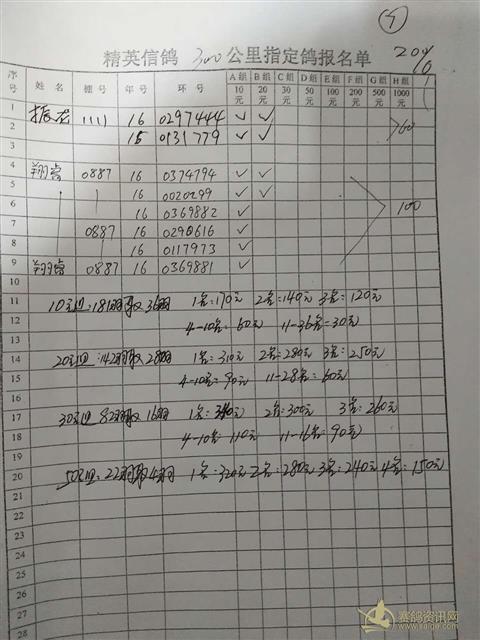 5
精英信鸽 300 公里指定鸽报名单
序号 姓名 棚号 年号 环号 A组10元 B组20元 C组30元 D组50元 E组100元 F组200元 G组500元 H组1000元
1 振龙 1111 16 0297444 ✓ ✓
2 15 0131779 ✓ ✓ 60
3
4 翔睿 0887 16 0374794 ✓ ✓
5 16 0020299 ✓ ✓
6 16 0369882 ✓ 100
7 0887 16 0290616 ✓
8 16 0117973 ✓
9 翔睿 0887 16 0369881 ✓
10
11 10元组:181羽取36羽 1名=170元 2名=140元 3名=120元
12 4-10名=60元 11-36名=30元
13
14 20元组:142羽取28羽 1名=310元 2名=280元 3名=250元
15 4-10名=90元 11-28名=60元
16
17 30元组 82羽取16羽 1名=340元 2名=300元 3名=260元
18 4-10名=110元 11-16名=90元
19
20 50元组:22羽取4羽 1名=320元 2名=280元 3名=240元 4名=150元
21
22
23
24
25
26
27
28
赛鸽资讯网
www.saige.com